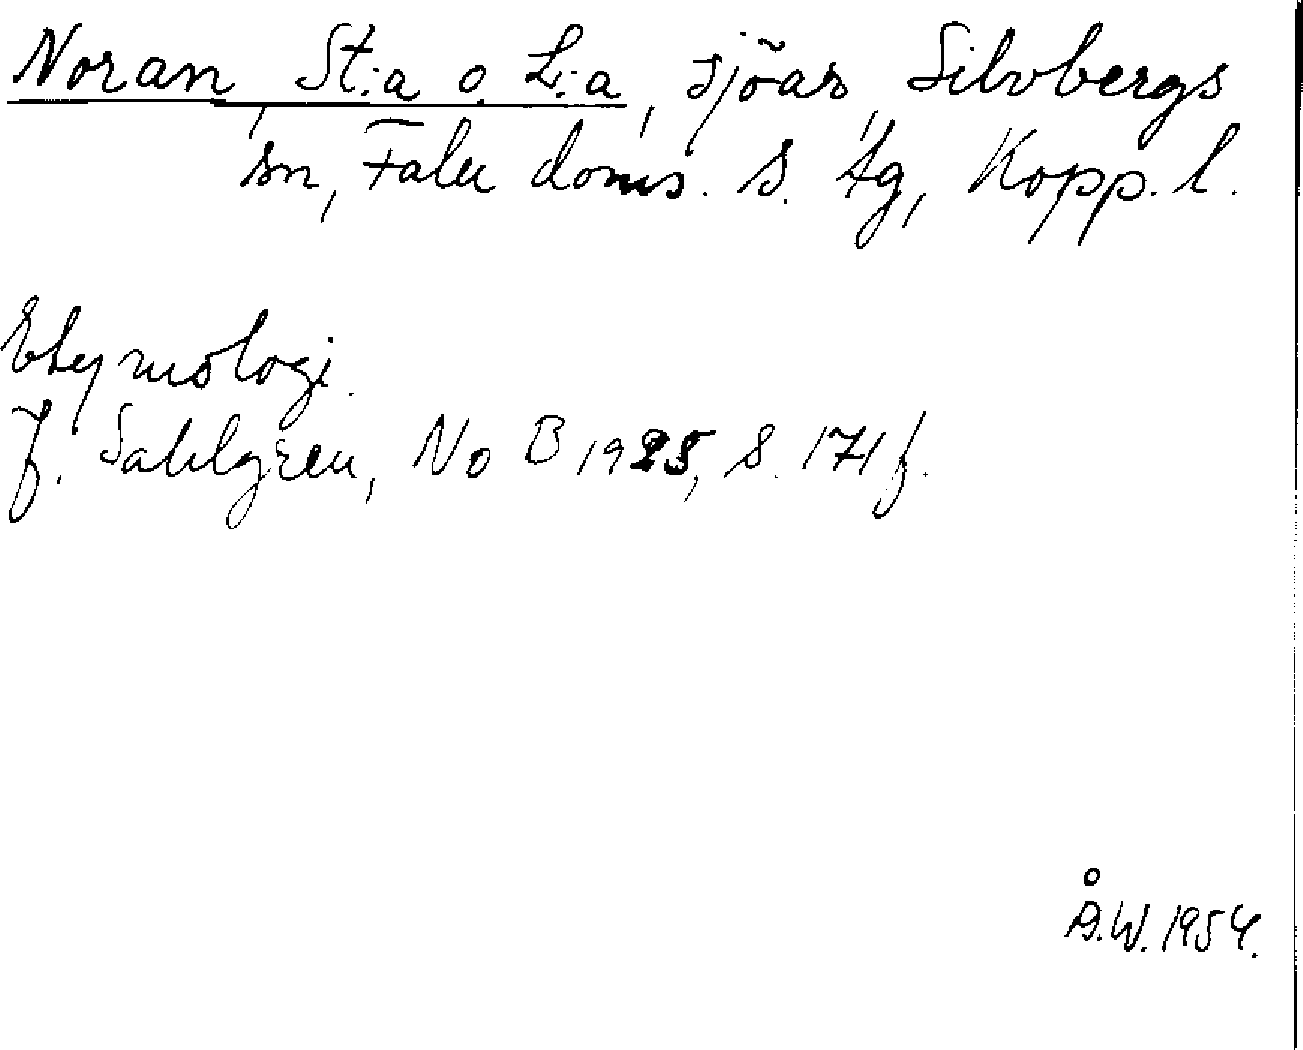 Noran, St:a o. L:a, sjöar, Silvbergs
sn, Falu doms. s. tg, Kopp. l.
Etymologi.
J. Sahlgren, NoB 1925, s. 171 f.
Å.W. 1954.